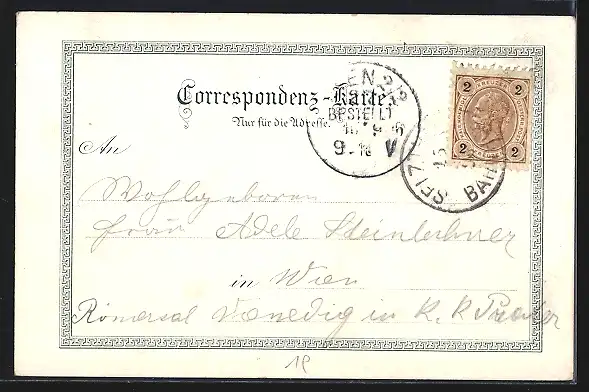 Correspondenz-Karte.
Nur für die Adresse.
WIEN 2/2
BESTELLT
9-10 V
SELZT
BAH
2 KREUZER 2
2 2
An
Wohlgeboren
Frau Adele Steinlechner
in Wien
Römersal Venedig in K. K Prater
18